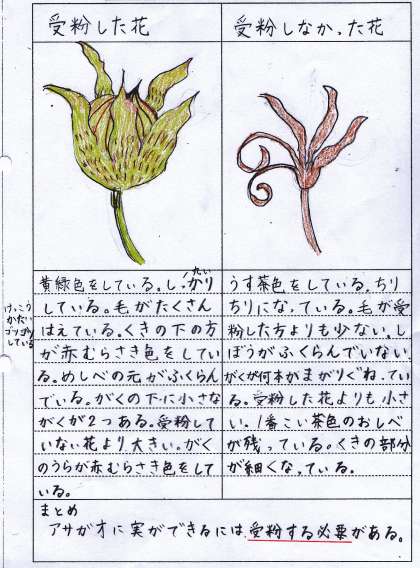 受粉した花
受粉しなかった花
黄緑色をしている。しっかり
たい
している。毛がたくさん
はえている。くきの下の方
が赤むらさき色をしてい
る。めしべの元がふくらん
でいる。がくの下に小さな
がくが2つある。受粉して
いない花より大きい。がく
のうらが赤むらさき色をして
いる。
けっこう
かたい
ゴツゴツ
している
うす茶色をしている。ちり
ちりになっている。毛が受
粉した方よりも少ない。し
ぼうがふくらんでいない。
がくが何本かまがりくねってい
る。受粉した花よりも小さ
い。1番こい茶色のおしべ
が残っている。くきの部分
が細くなっている。
まとめ
アサガオに実ができるには受粉する必要がある。